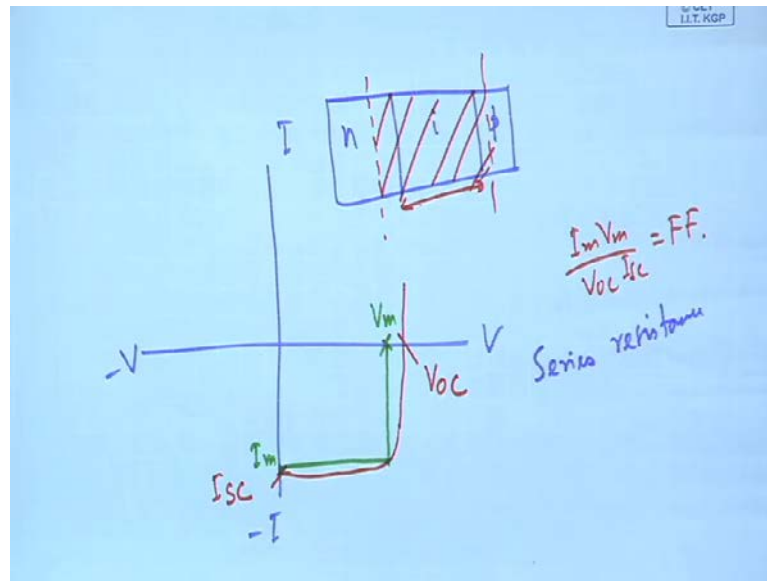 © CET
I.I.T. KGP
I
n
i
p
ImVm
VOC ISC
= FF.
Vm
-V
V
VOC
Series resistance
Im
ISC
-I